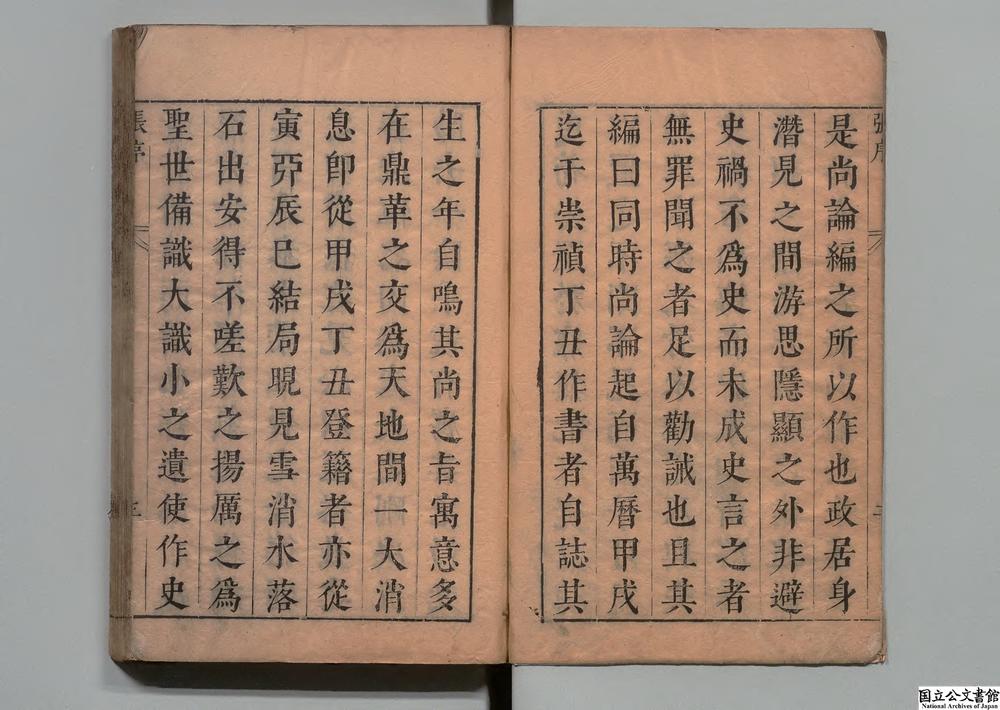 是尚論編之所以作也政居身
潛見之間游思隱顯之外非避
史禍不為史而未成史言之者
無罪聞之者足以勸誡也且其
編曰同時尚論起自萬曆甲戌
迄于崇禎丁丑作書者自誌其
生之年自鳴其尚之旨寓意多
在鼎革之交為天地間一大消
息卽從甲戌丁丑登籍者亦從
寅亞辰巳結局睍見雪消水落
石出安得不嗟歎之揚厲之為
聖世備識大識小之遺使作史
張序
二
張序
三
国立公文書館
National Archives of Japan